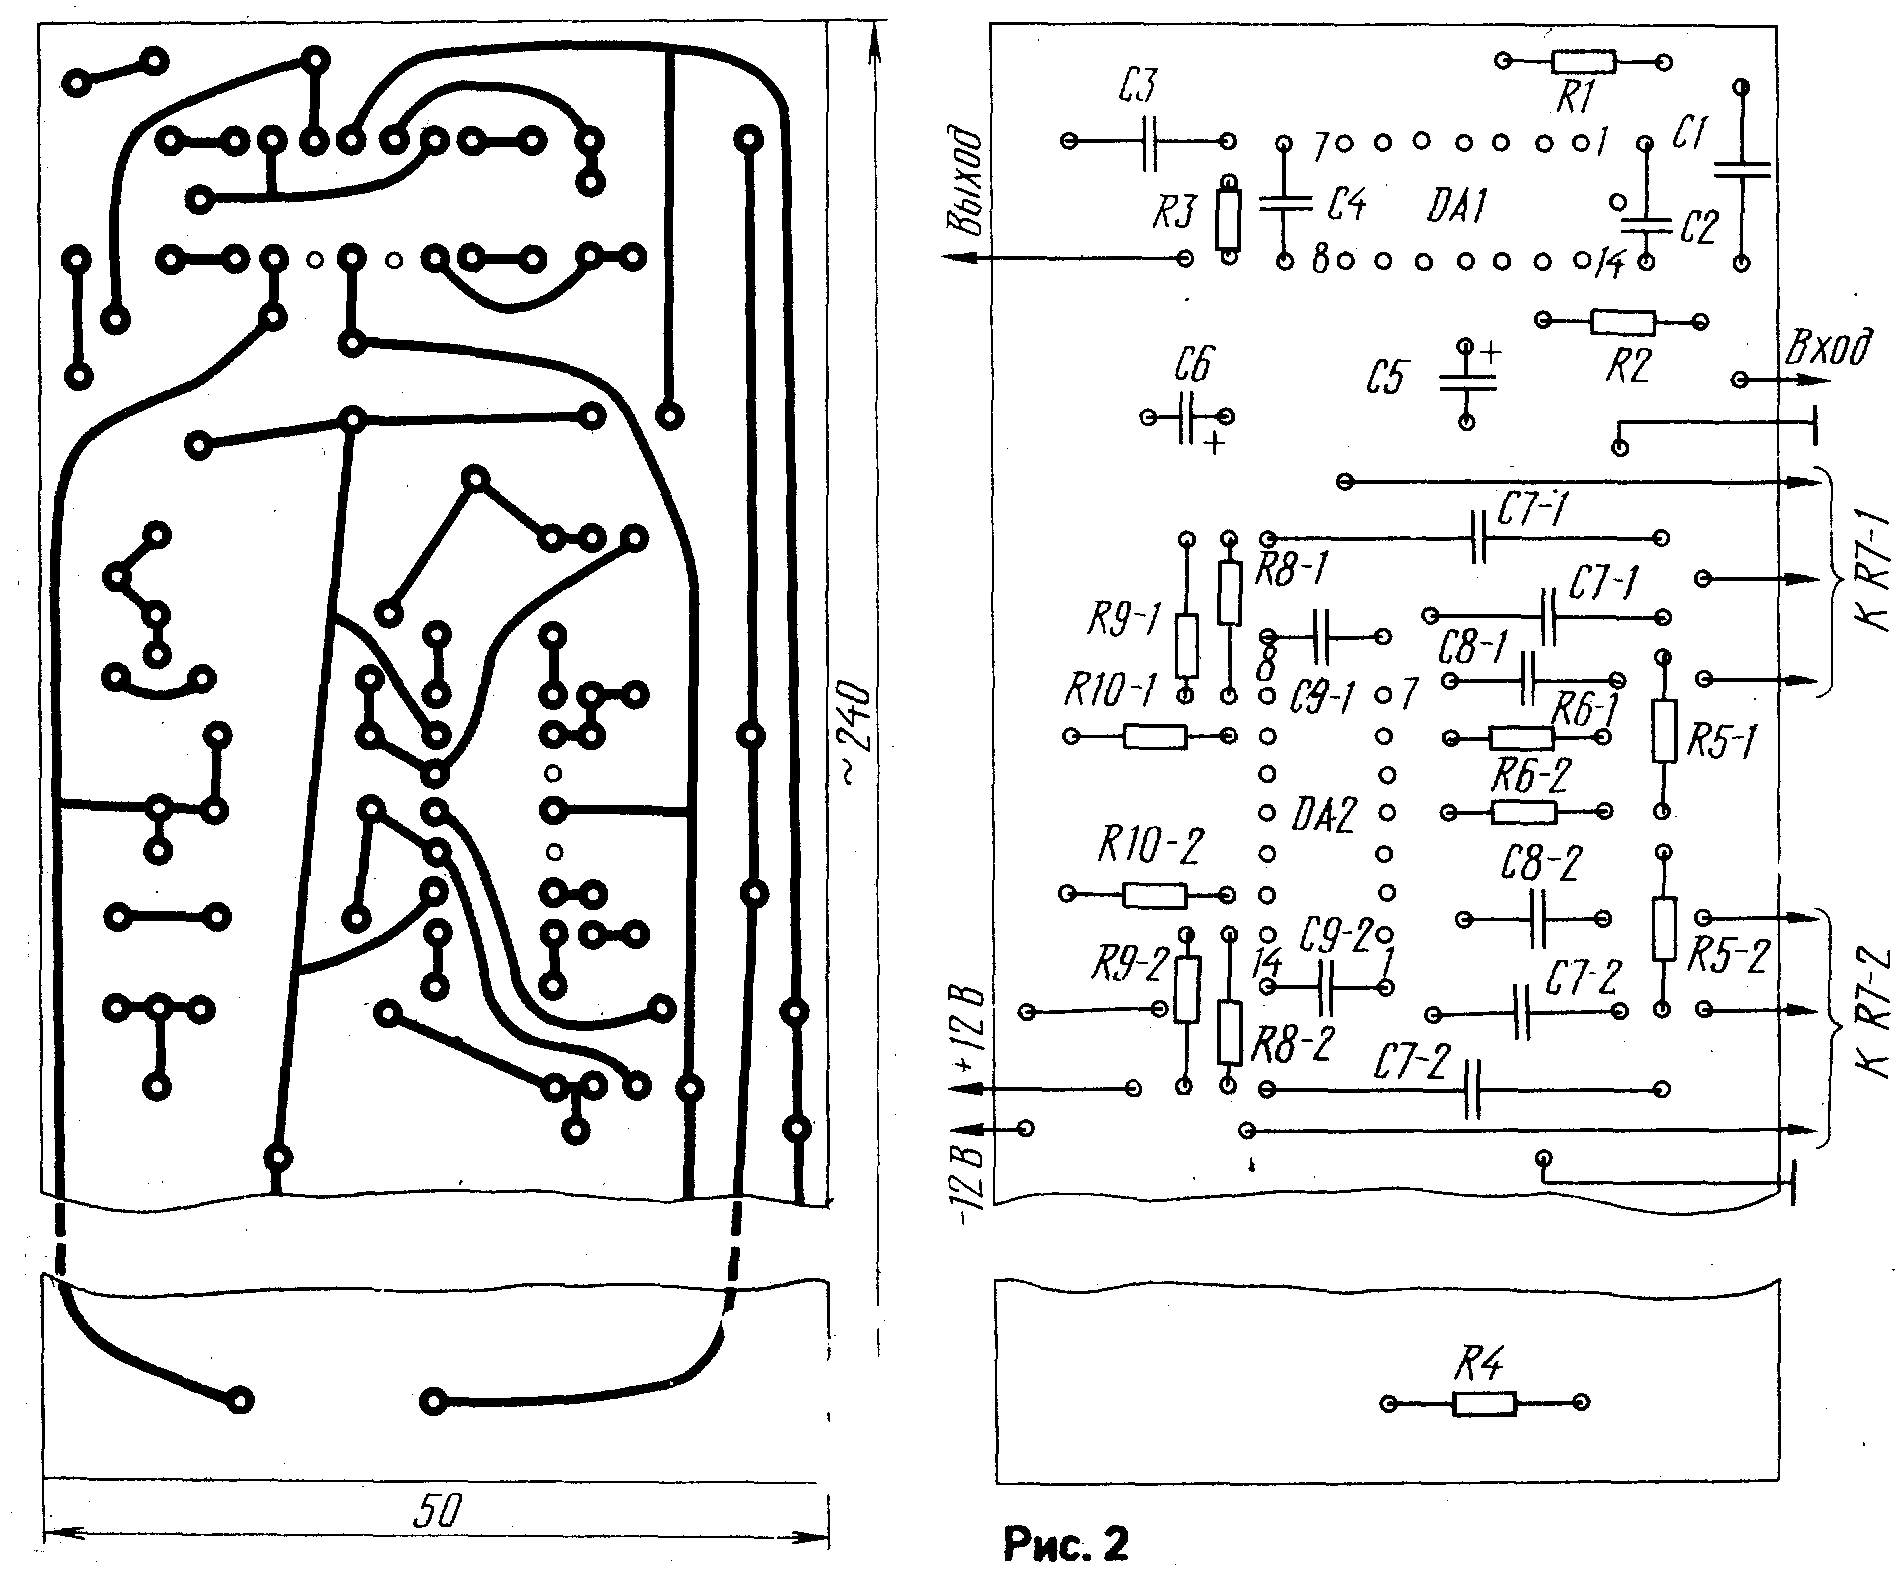 R1
C3
C1
Выход
7
1
R3
C4
DA1
C2
8
14
Вход
R2
C6
C5
+
+
C7-1
R8-1
C7-1
К R7-1
R9-1
C8-1
8
R10-1
C9-1
7
R6-1
~240
R5-1
R6-2
DA2
R10-2
C8-2
C9-2
R9-2
14
1
R5-2
C7-2
+12 В
R8-2
К R7-2
C7-2
-12 В
R4
50
Рис. 2